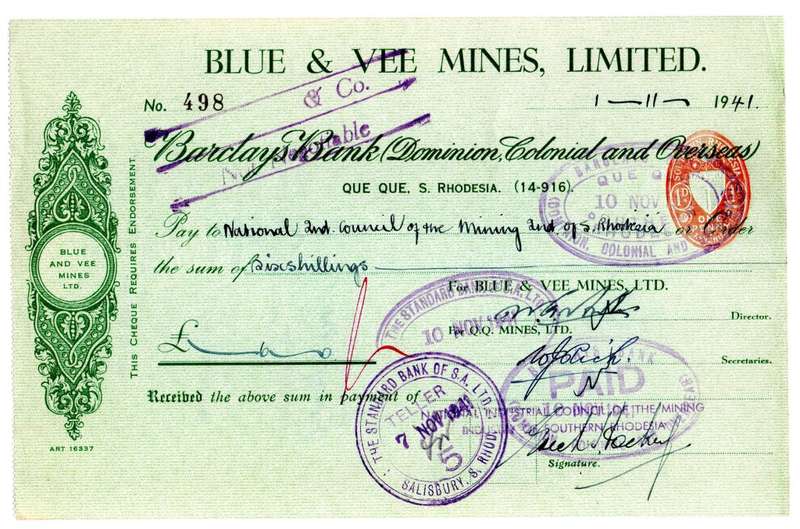 BLUE & VEE MINES, LIMITED.
No. 498
1 — 11 — 1941.
& Co.
Not Negotiable
Barclays Bank (Dominion, Colonial and Overseas)
QUE QUE, S. RHODESIA. (14-916)
QUE Q
10 NOV
COLONIAL AND
1D
Pay to National Ind. Council of the Mining Ind. of S. Rhodesia or Order
the sum of Six shillings
For BLUE & VEE MINES, LTD.
Director.
THE STANDARD BANK OF S.A. LTD
10 NOV
Q.Q. MINES, LTD.
Secretaries.
£
PAID
Received the above sum in payment of
THE STANDARD BANK OF S.A. LTD.
TELLER
7 NOV 1941
5
SALISBURY, S. RHOD.
NATIONAL INDUSTRIAL COUNCIL OF THE MINING
SOUTHERN RHODESIA
Signature.
BLUE
AND VEE
MINES
LTD.
THIS CHEQUE REQUIRES ENDORSEMENT
ART 16337